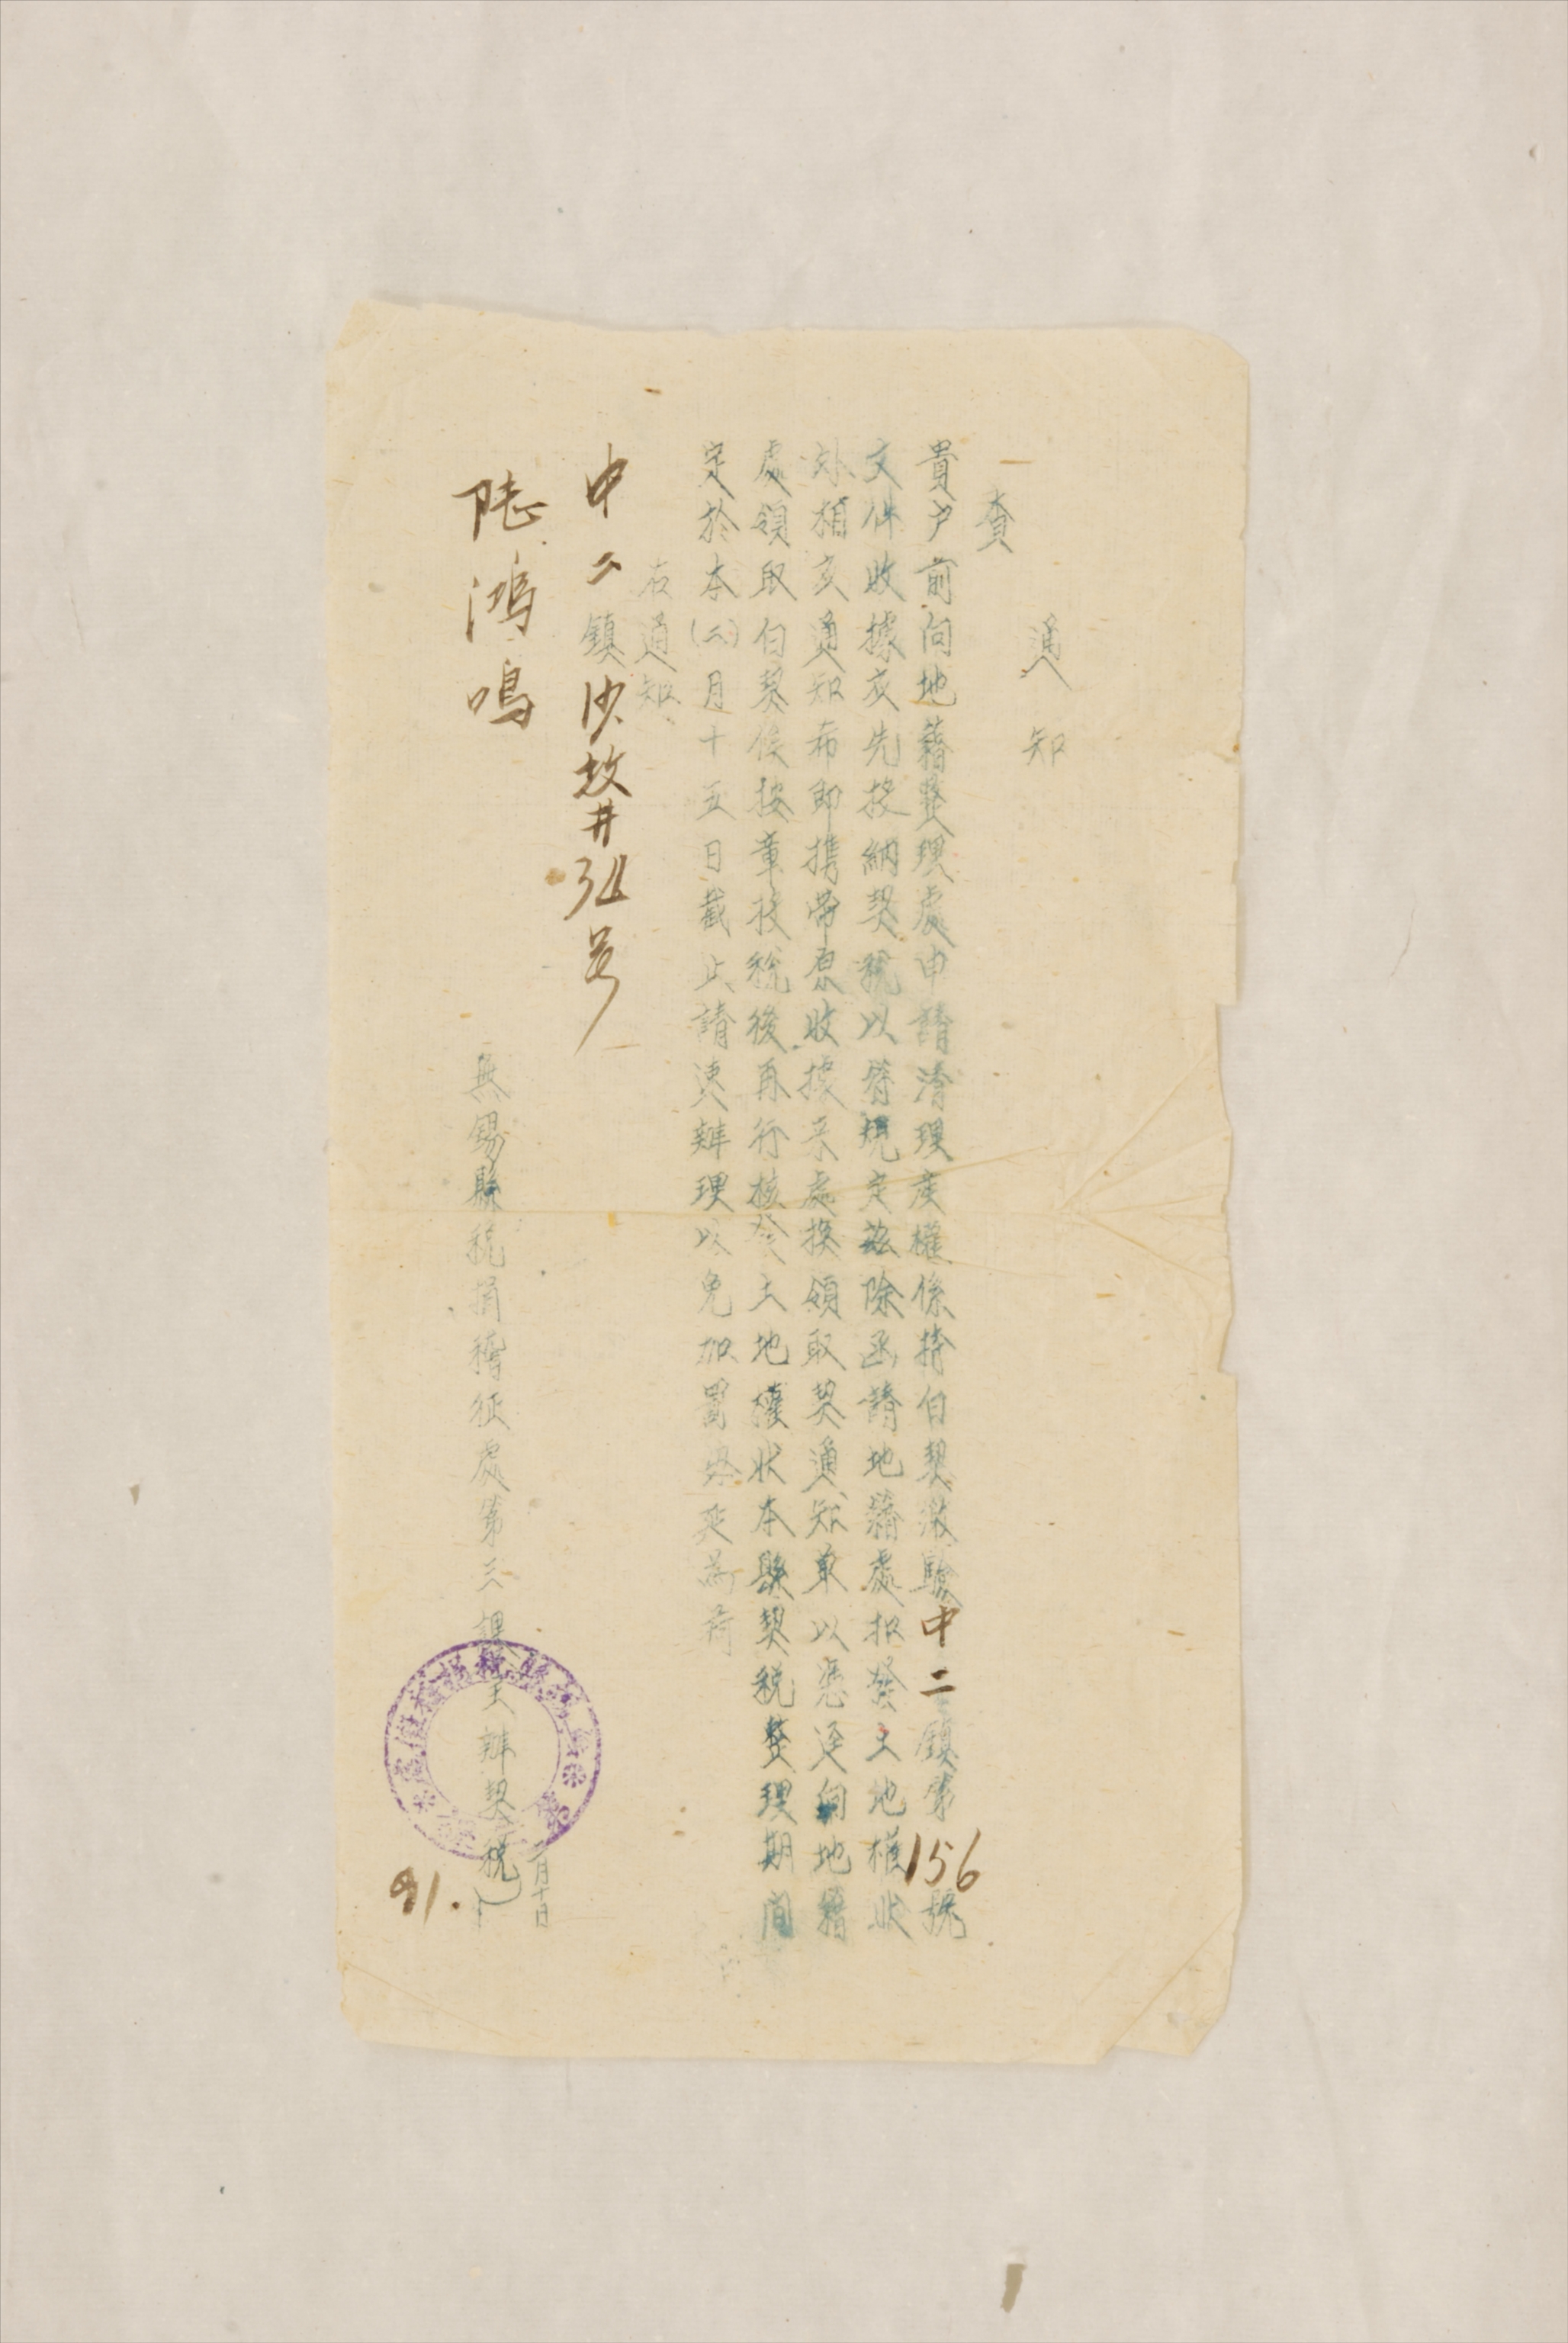 通知
查
貴户前向地籍整理處申請清理產權係持白契繳驗中二鎮第156號
文件收據亥先投納契稅以符規定茲除函請地籍處扣發土地權狀
外相亥通知希即携帶原收據来處换領取契通知单以憑逕向地籍
處領取白契俟按章投稅後再行核發土地權狀本縣契税整理期間
定於本(二)月十五日截止請速辦理以免加罰毋延為荷
右通知
中二鎮沙故井34号
陸鴻鳴
無錫縣税捐稽征處第三課(主辦契税)
二月十日
91.